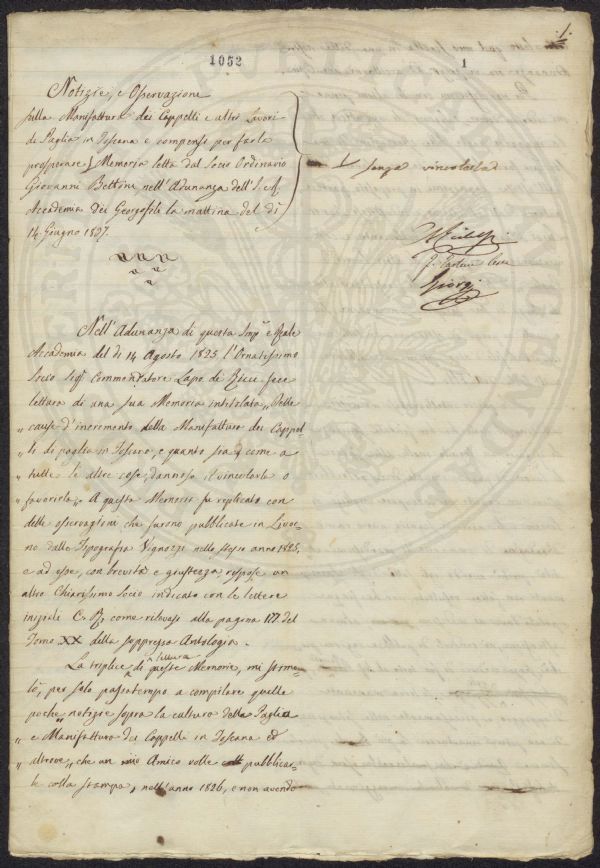 1.
1052
1
Notizie, e Osservazioni
sulla Manifattura dei Cappelli e altri lavori
di Paglia in Toscana e compensi per farla
prosperare } Memoria letta dal Socio Ordinario
Giovanni Bettini nell'Adunanza dell'I. e R.
Accademia dei Georgofili la mattina del dì
14 Giugno 1837.
senza vincolarla
Nell'Adunanza di questa Imp. e Reale
Accademia del dì 14 Agosto 1825 l'Ornatissimo
Socio Sigr. Commendatore Lapo de Ricci fece
lettura di una sua Memoria intitolata „ Delle
„ cause d'incremento della Manifattura dei Cappel-
„ li di paglia in Toscana, e quanto sia, come a
„ tutte le altre cose, dannoso il vincolarla o
„ favorirla „ A questa Memoria fu replicato con
delle osservazioni che furono pubblicate in Livor-
no dalla Tipografia Vignozzi nello stesso anno 1825,
e ad esse, con brevità e giustezza, rispose un
altro Chiarissimo Socio indicato con le lettere
iniziali C. R. come rilevasi alla pagina 177 del
Tomo XX della soppressa Antologia.
La triplice lettura di queste Memorie, mi stimo-
lò, per solo passatempo a compilare quelle
poche „ notizie sopra la cultura della Paglia
„ e Manifattura dei Cappelli in Toscana ed
„ altrove „ che un mio Amico volle pubblicar-
le colla stampa, nell'anno 1826, e non avendo